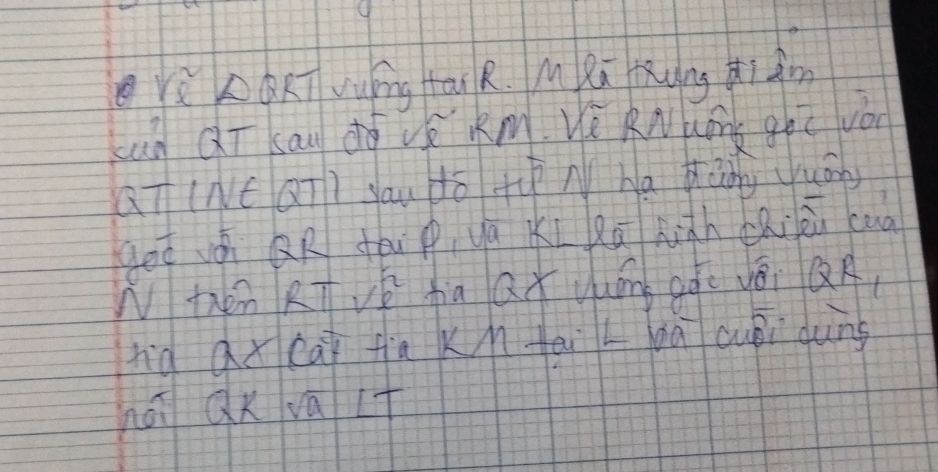 Vẽ Δ QRT vuông tại R. M là trung điểm
của QT sau đó vẽ RM. Vẽ RN uông góc với
QT (N∈ QT) sau đó từ N hạ đường vuông
góc với QR tại P, và KL là hình chiếu của
N trên RT vẽ tia QX vuông góc với QR,
tia QX cắt tia KM tại L và cuối dùng
nối QK và LT